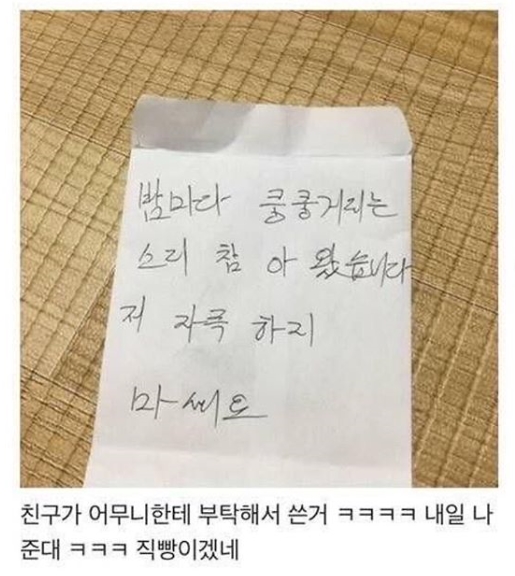 밤마다 쿵쿵거리는
소리 참 아 왔습니다
저 자극 하지
마쎄요
친구가 어무니한테 부탁해서 쓴거 ㅋㅋㅋㅋ 내일 나
준대 ㅋㅋㅋ 직빵이겠네